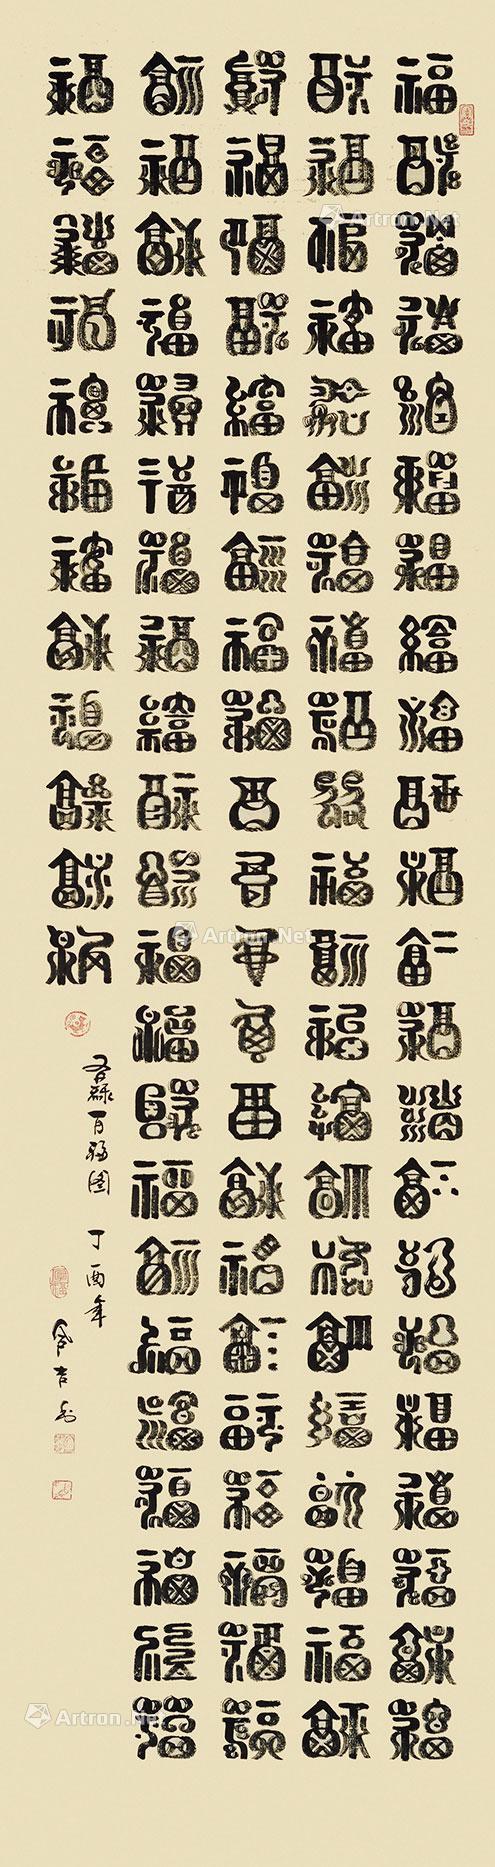 福福福福福福福福福福福福福福福福福福福福福福
福福福福福福福福福福福福福福福福福福福福福福
福福福福福福福福福福福福福福福福福福福福福福
福福福福福福福福福福福福福福福福福福福福福福
福福福福福福福福福福福福
百福图 丁酉年
Artron.Net
Artron.Net
Artron.Net